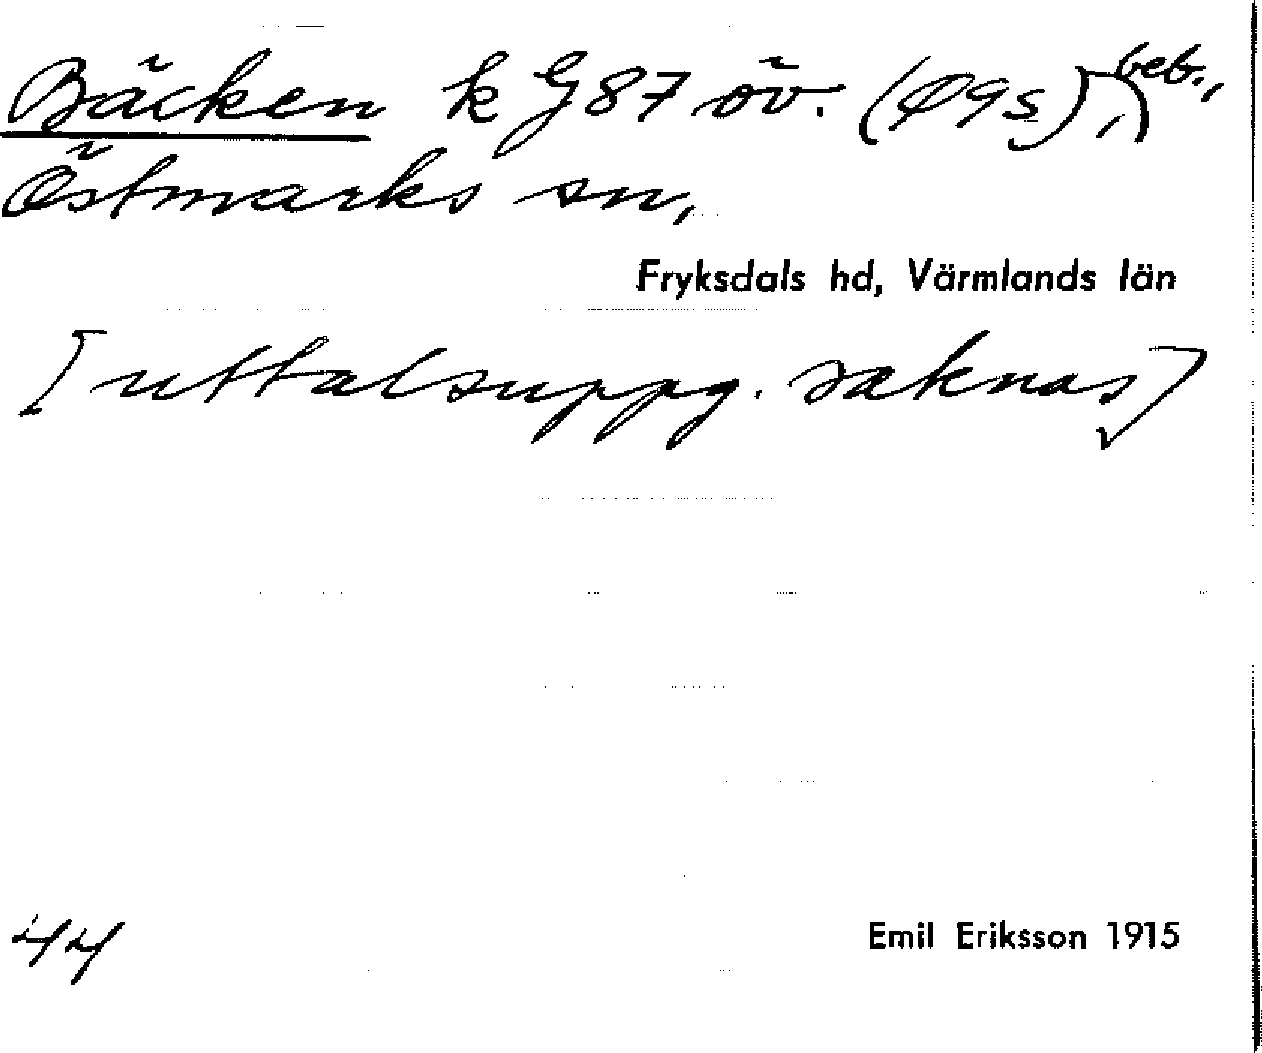 Bäcken k G 87 öv. (Q9s), beb.,
Östmarks sn,
Fryksdals hd, Värmlands län
[uttalsuppg. saknas]
44
Emil Eriksson 1915